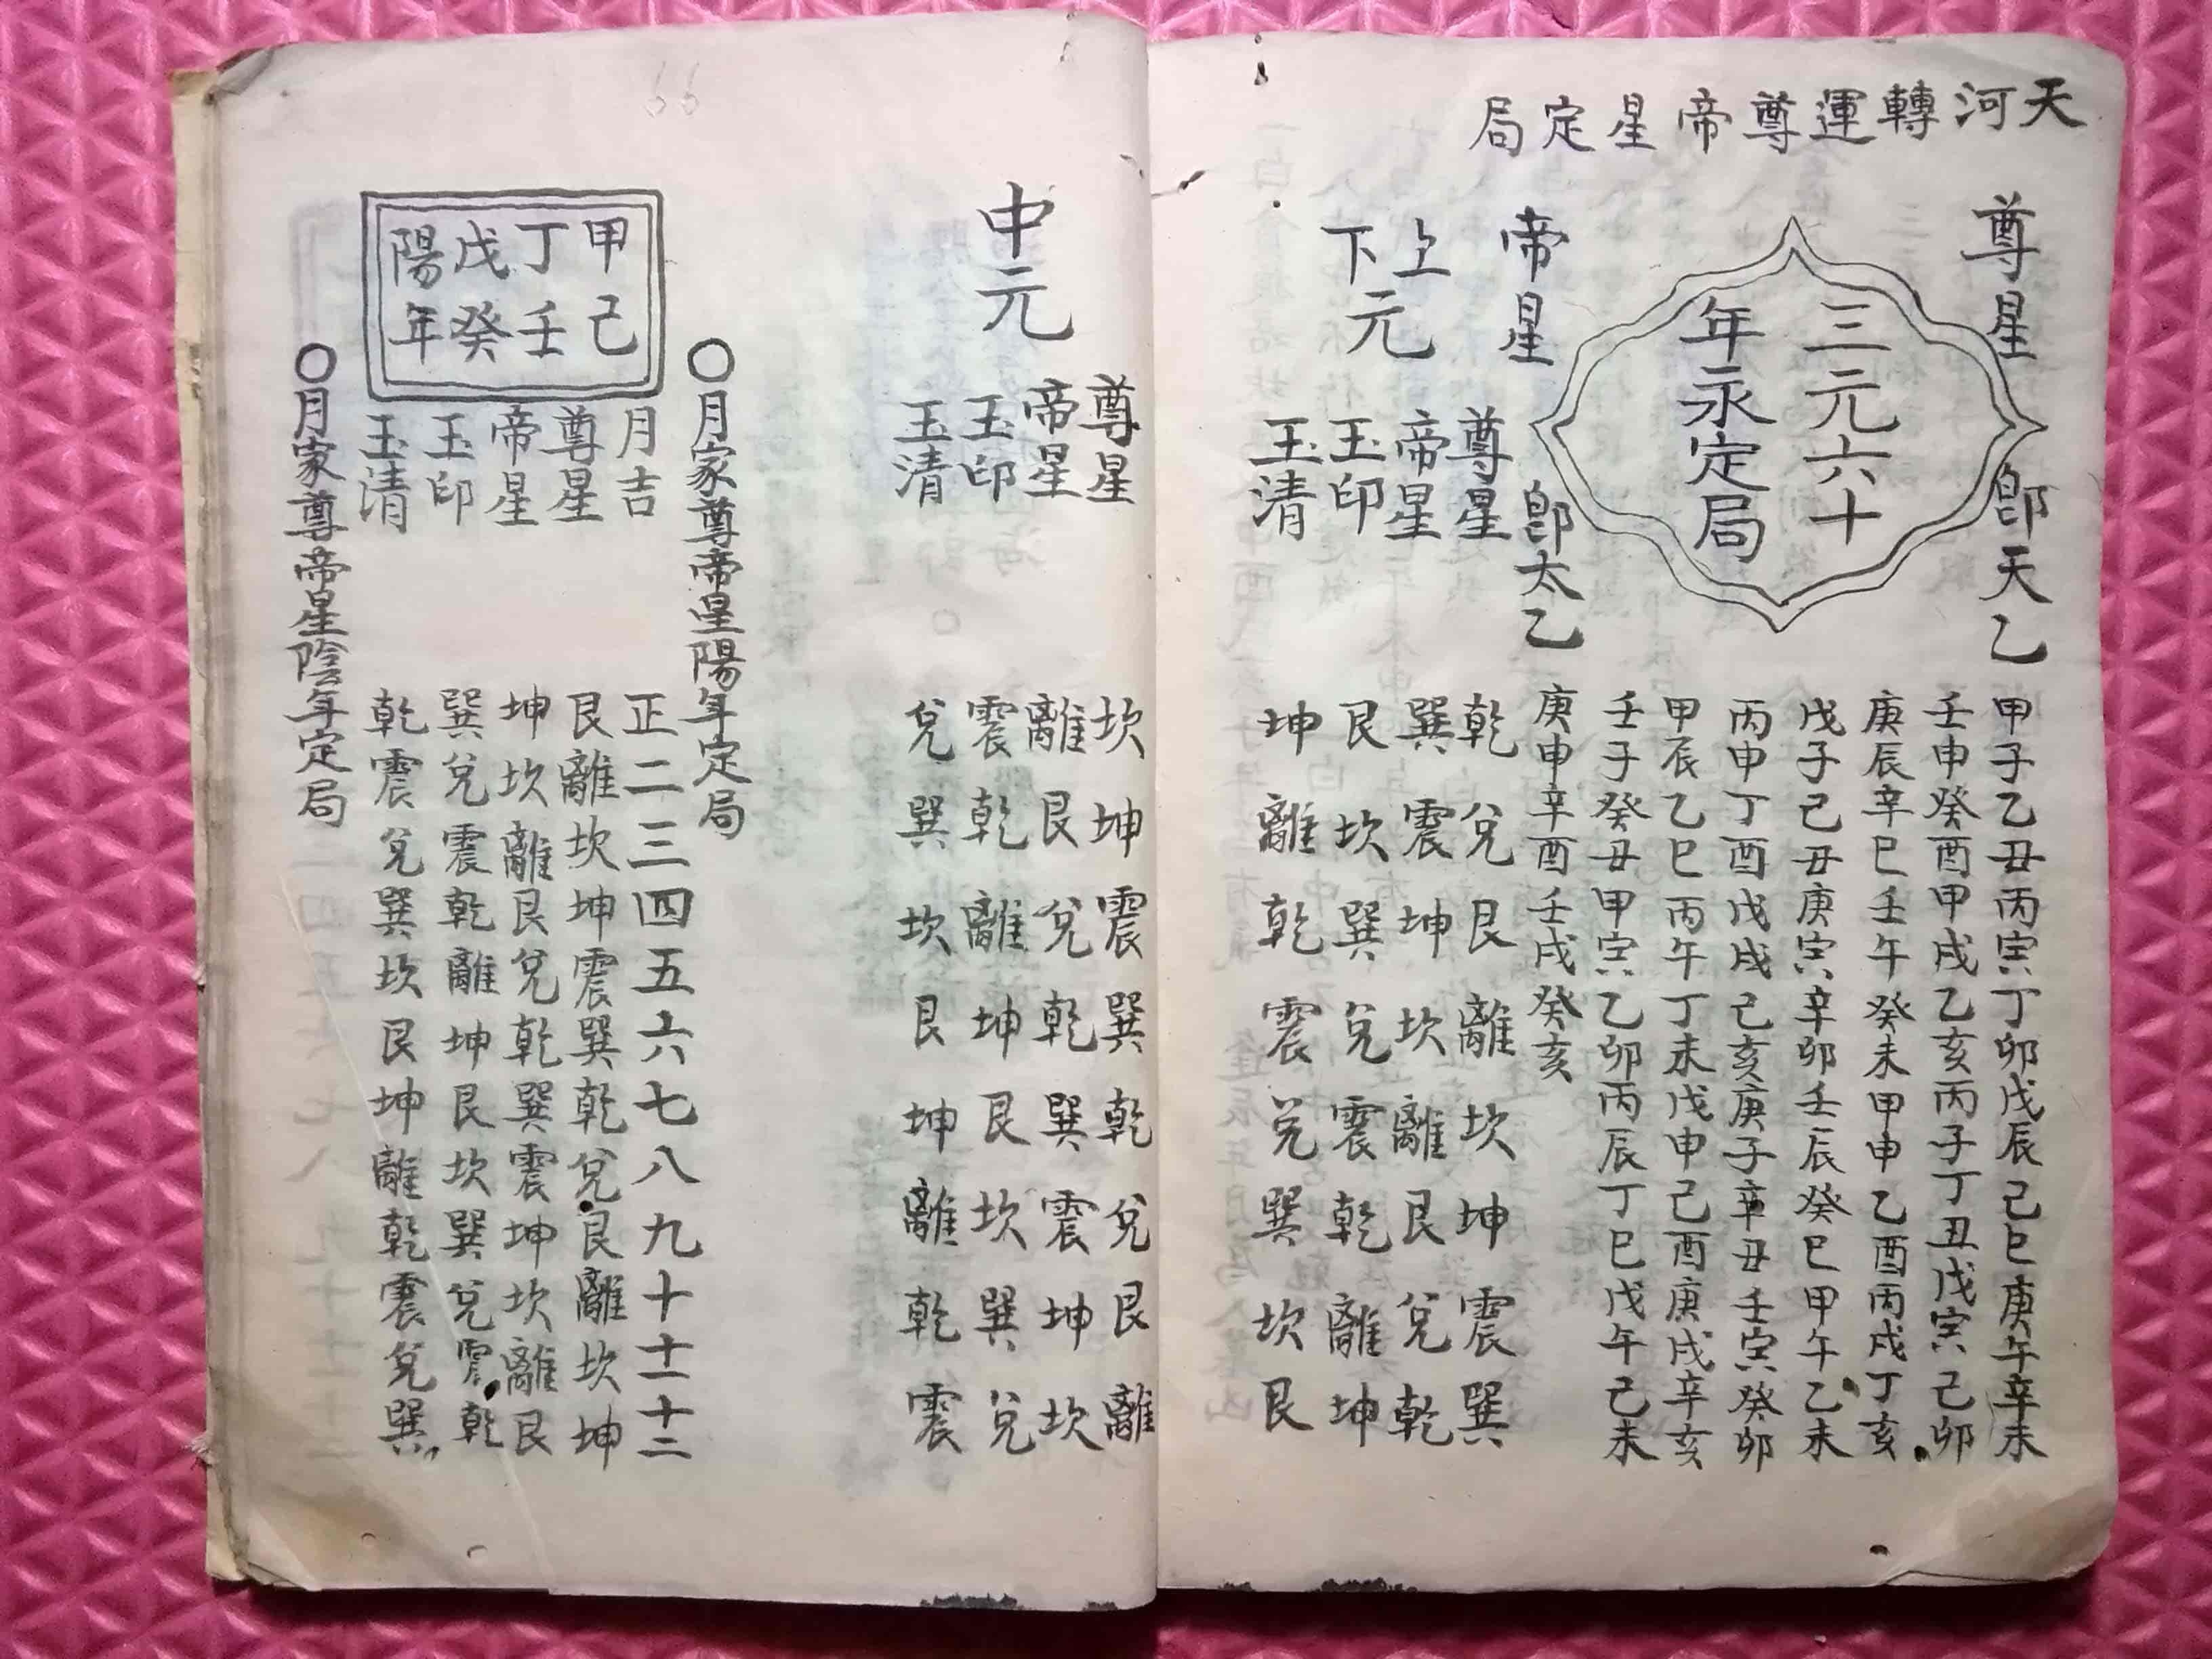 天河轉運尊帝星定局
尊星即天乙
三元六十
年永定局
帝星即太乙
甲子乙丑丙寅丁卯戊辰己巳庚午辛未
壬申癸酉甲戌乙亥丙子丁丑戊寅己卯
庚辰辛巳壬午癸未甲申乙酉丙戌丁亥
戊子己丑庚寅辛卯壬辰癸巳甲午乙未
丙申丁酉戊戌己亥庚子辛丑壬寅癸卯
甲辰乙巳丙午丁未戊申己酉庚戌辛亥
壬子癸丑甲寅乙卯丙辰丁巳戊午己未
庚申辛酉壬戌癸亥
上下元
尊星 乾兌艮離坎坤震巽
帝星 巽震坤坎離艮兌乾
玉印 艮坎巽兌震乾離坤
玉清 坤離乾震兌巽坎艮
中元
尊星 坎坤震巽乾兌艮離
帝星 離艮兌乾巽震坤坎
玉印 震乾離坤艮坎巽兌
玉清 兌巽坎艮坤離乾震
66
○月家尊帝星陽年定局
甲己
丁壬
戊癸
陽年
月吉 正二三四五六七八九十十一十二
尊星 艮離坎坤震巽乾兌艮離坎坤
帝星 坤坎離艮兌乾巽震坤坎離艮
玉印 巽兌震乾離坤艮坎巽兌震乾
玉清 乾震兌巽坎艮坤離乾震兌巽
○月家尊帝星陰年定局